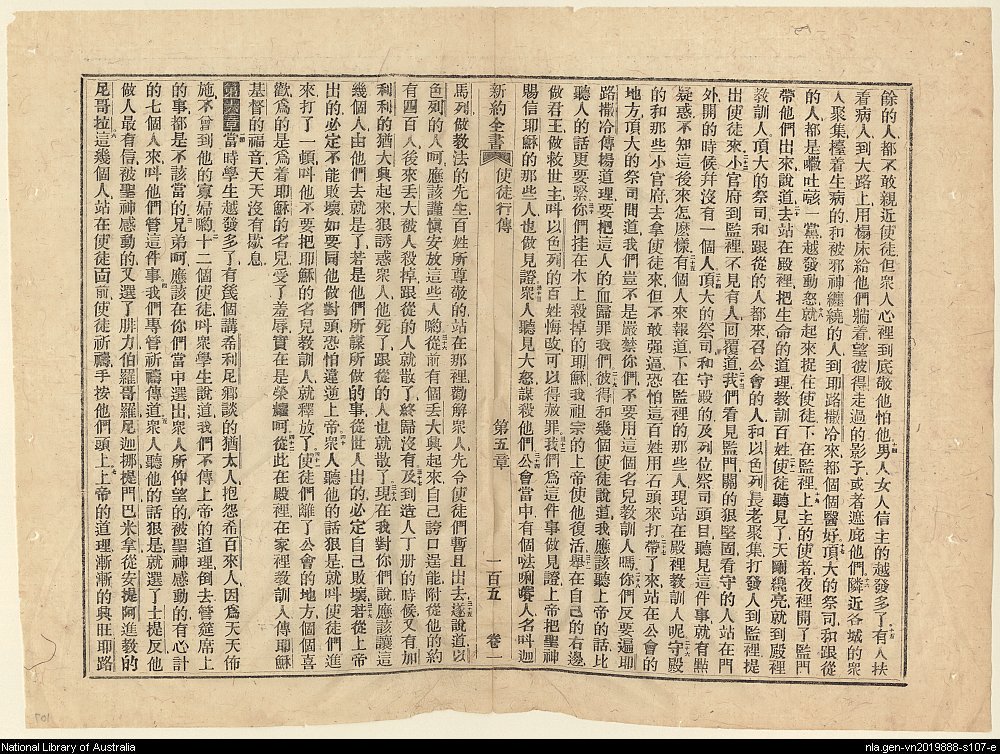 餘的人都不敢親近使徒但衆人心裡到底敬他怕他男人女人信主的越發多了有人扶
着病人到大路上用榻床給他們躺着望彼得走過的影子或者遮庇他們隣近各城的衆
人聚集擡着生病的和被邪神纏繞的人到耶路撒冷來都個個醫好頂大的祭司和跟從
的人都是嚈吐咳一黨越發動怒就起來捉住使徒下在監裡上主的使者夜裡開了監門
帶他們出來說道去站在殿裡把生命的道理教訓百姓使徒聽見了天剛纔亮就到殿裡
教訓人頂大的祭司和跟從的人都來召公會的人和以色列長老聚集打發人到監裡提
出使徒來小官府到監裡不見有人回覆道我們看見監門關的狠堅固看守的人站在門
外開的時候并沒有一個人頂大的祭司和守殿的及列位祭司頭目聽見這件事就有點
疑惑不知這後來怎麼樣有個人來報道下在監裡的那些人現站在殿裡教訓人呢守殿
的和那些小官府去拿使徒來但不敢强逼恐怕這百姓用石頭來打帶了來站在公會的
地方頂大的祭司問道我們豈不是嚴禁你們不要用這個名兒教訓人嗎你們反要遍耶
路撒冷傳揚道理要把這人的血歸罪我們彼得和幾個使徒說道我應該聽上帝的話比
聽人的話更要緊你們挂在木上殺掉的耶穌我祖宗的上帝使他復活舉在自己的右邊
做君王做救世主叫以色列的百姓悔改可以得赦罪我們爲這件事做見證上帝把聖神
賜信耶穌的那些人也做見證衆人聽見大怒謀殺他們公會當中有個𠵽唎嚈人名叫迦
新約全書 使徒行傳 第五章 一百五 卷一
馬列做教法的先生百姓所尊敬的站在那裡勸解衆人先令使徒們暫且出去遂說道以
色列的人呵應該謹愼安放這些人喲從前有個丢大興起來自己誇口逞能附從他的約
有四百人後來丢大被人殺掉跟從的人就散了終歸沒有及到造人丁册的時候又有加
利利的猶大興起來狠誘惑衆人他死了跟從的人也就散了現在我對你們說應該讓這
幾個人由他們去就是了若是他們所謀所做的事從世人出的必定自己敗壞若從上帝
出的必定不能敗壞如要同他做對頭恐怕違逆上帝衆人聽他的話狠是就叫使徒們進
來打了一頓叫他不要把耶穌的名兒教訓人就釋放了使徒們離了公會的地方個個喜
歡爲的是爲着耶穌的名兒受了羞辱實在是榮耀呵從此在殿裡在家裡教訓人傳耶穌
基督的福音天天沒有歇息
第六章當時學生越發多了有幾個講希利尼鄕談的猶太人抱怨希百來人因爲天天佈
施不曾到他的寡婦喲十二個使徒叫衆學生說道我們不傳上帝的道理倒去管筵席上
的事都是不該當的兄弟呵應該在你們當中選出衆人所仰望的被聖神感動的有心計
的七個人來叫他們管這件事我們專管祈禱傳道衆人聽他的話狠是就選了士提反他
做人最有信被聖神感動的又選了腓力伯羅哥羅尼迦挪提門巴米拿從安提阿進教的
尼哥拉這幾個人站在使徒面前使徒祈禱手按他們頭上上帝的道理漸漸的興旺耶路
National Library of Australia
nla.gen-vn2019888-s107-e